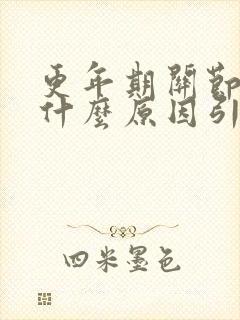 更年期關節
什麼原因引
四米墨色